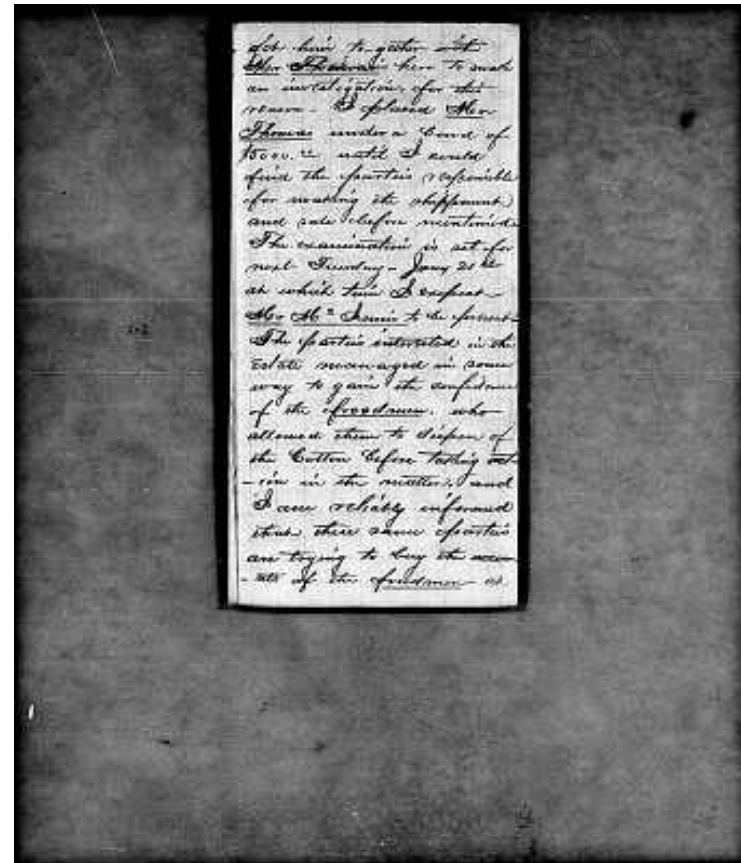 for him to-gether with
Mr Thomas here to make
an investigation, for this
reason - I placed Mr
Thomas under a bond of
$5000.00 until I could
find the parties responsible
for making the shippment
and sale before mentioned
The examination is set for
next Tuesday - Jany 21st
at which time I expect
Mr Mc Innis to be present
The parties interested in the
Estate managed in some
way to gain the confidence
of the freedmen. who
allowed them to dispose of
the Cotton before taking act
-ion in the matter, and
I am reliably informed
that these same parties
are trying to buy the accou
-nts of the freedmen at